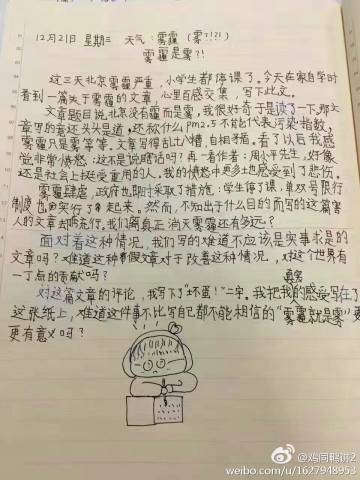 12月21日 星期三 天气:雾霾(雾?!?!)
雾霾是雾?!
这三天北京雾霾严重,小学生都停课了。今天在家自学时
看到一篇关于雾霾的文章,心里百感交集,写下此文。
文章题目说北京没有霾而是雾。我很好奇于是读了一下,那文
章写的意还头头是道,还称什么PM2.5不能代表污染指数,
雾霾只是雾等等。文章写得乱七八糟,自相矛盾。看了以后我感
觉非常愤怒:这不是说瞎话吗?再一看作者:周小平先生,好像
还是社会上挺受重用的人,我的愤怒中更多也感受到了悲伤。
雾霾肆虐,政府也即时采取了措施:学生停课,单双号限行
制度也实行了起来。然而,不知出于什么目的而写的这篇害
人的文章去却流行。我们离真正消灭雾霾还有多远?
面对着这种情况,我们写的难道不应该是实事求是的
文章吗?难道这种假文章对于改善这种情况,对这个世界有
一丁点的贡献吗?
对这篇文章的评论,我写下了"坏蛋!"二字。我把我的真实感受写在了
这张纸上,难道这件事不比写自己都不能相信的"雾霾就是雾"更
更有意义吗?
@鸡同鸭讲2
weibo.com/u/1627948953